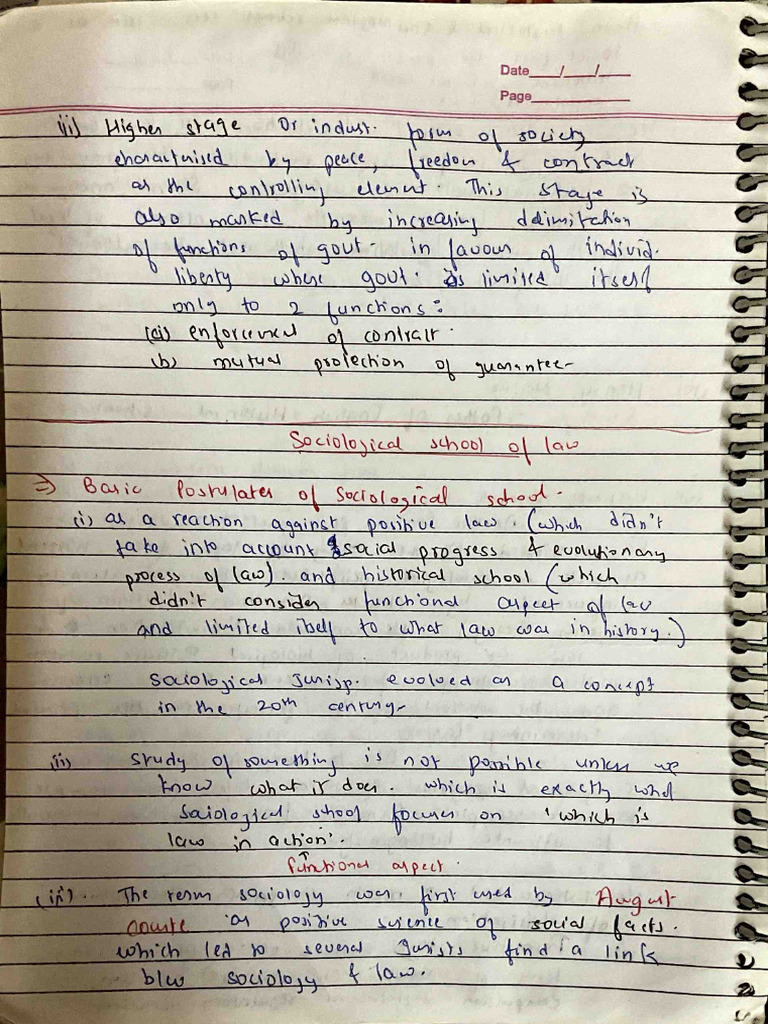 Date___/___/___
Page___________
iii) Higher stage or indust. form of society
characterised by peace, freedom & contract
as the controlling element. This stage is
also marked by increasing delimitation
of functions of govt. in favour of individ.
liberty where govt. is limited itself
only to 2 functions:
(a) enforcement of contract.
(b) mutual protection of guarantee-
Sociological school of law
⇒ Basic Postulates of Sociological school.
(i) as a reaction against positive law. (which didn't
take into account social progress & evolutionary
process of law). and historical school (which
didn't consider functional aspect of law
and limited itself to what law was in history.)
Sociological Jurisp. evolved as a concept
in the 20th century-
ii) Study of something is not possible unless we
know what it does. which is exactly what
Sociological school focuses on 'which is
law in action'.
↑
functional aspect.
(iii). The term sociology was first used by August
Comte as positive science of social facts.
which led to several Jurists find a link
b/w sociology & law.